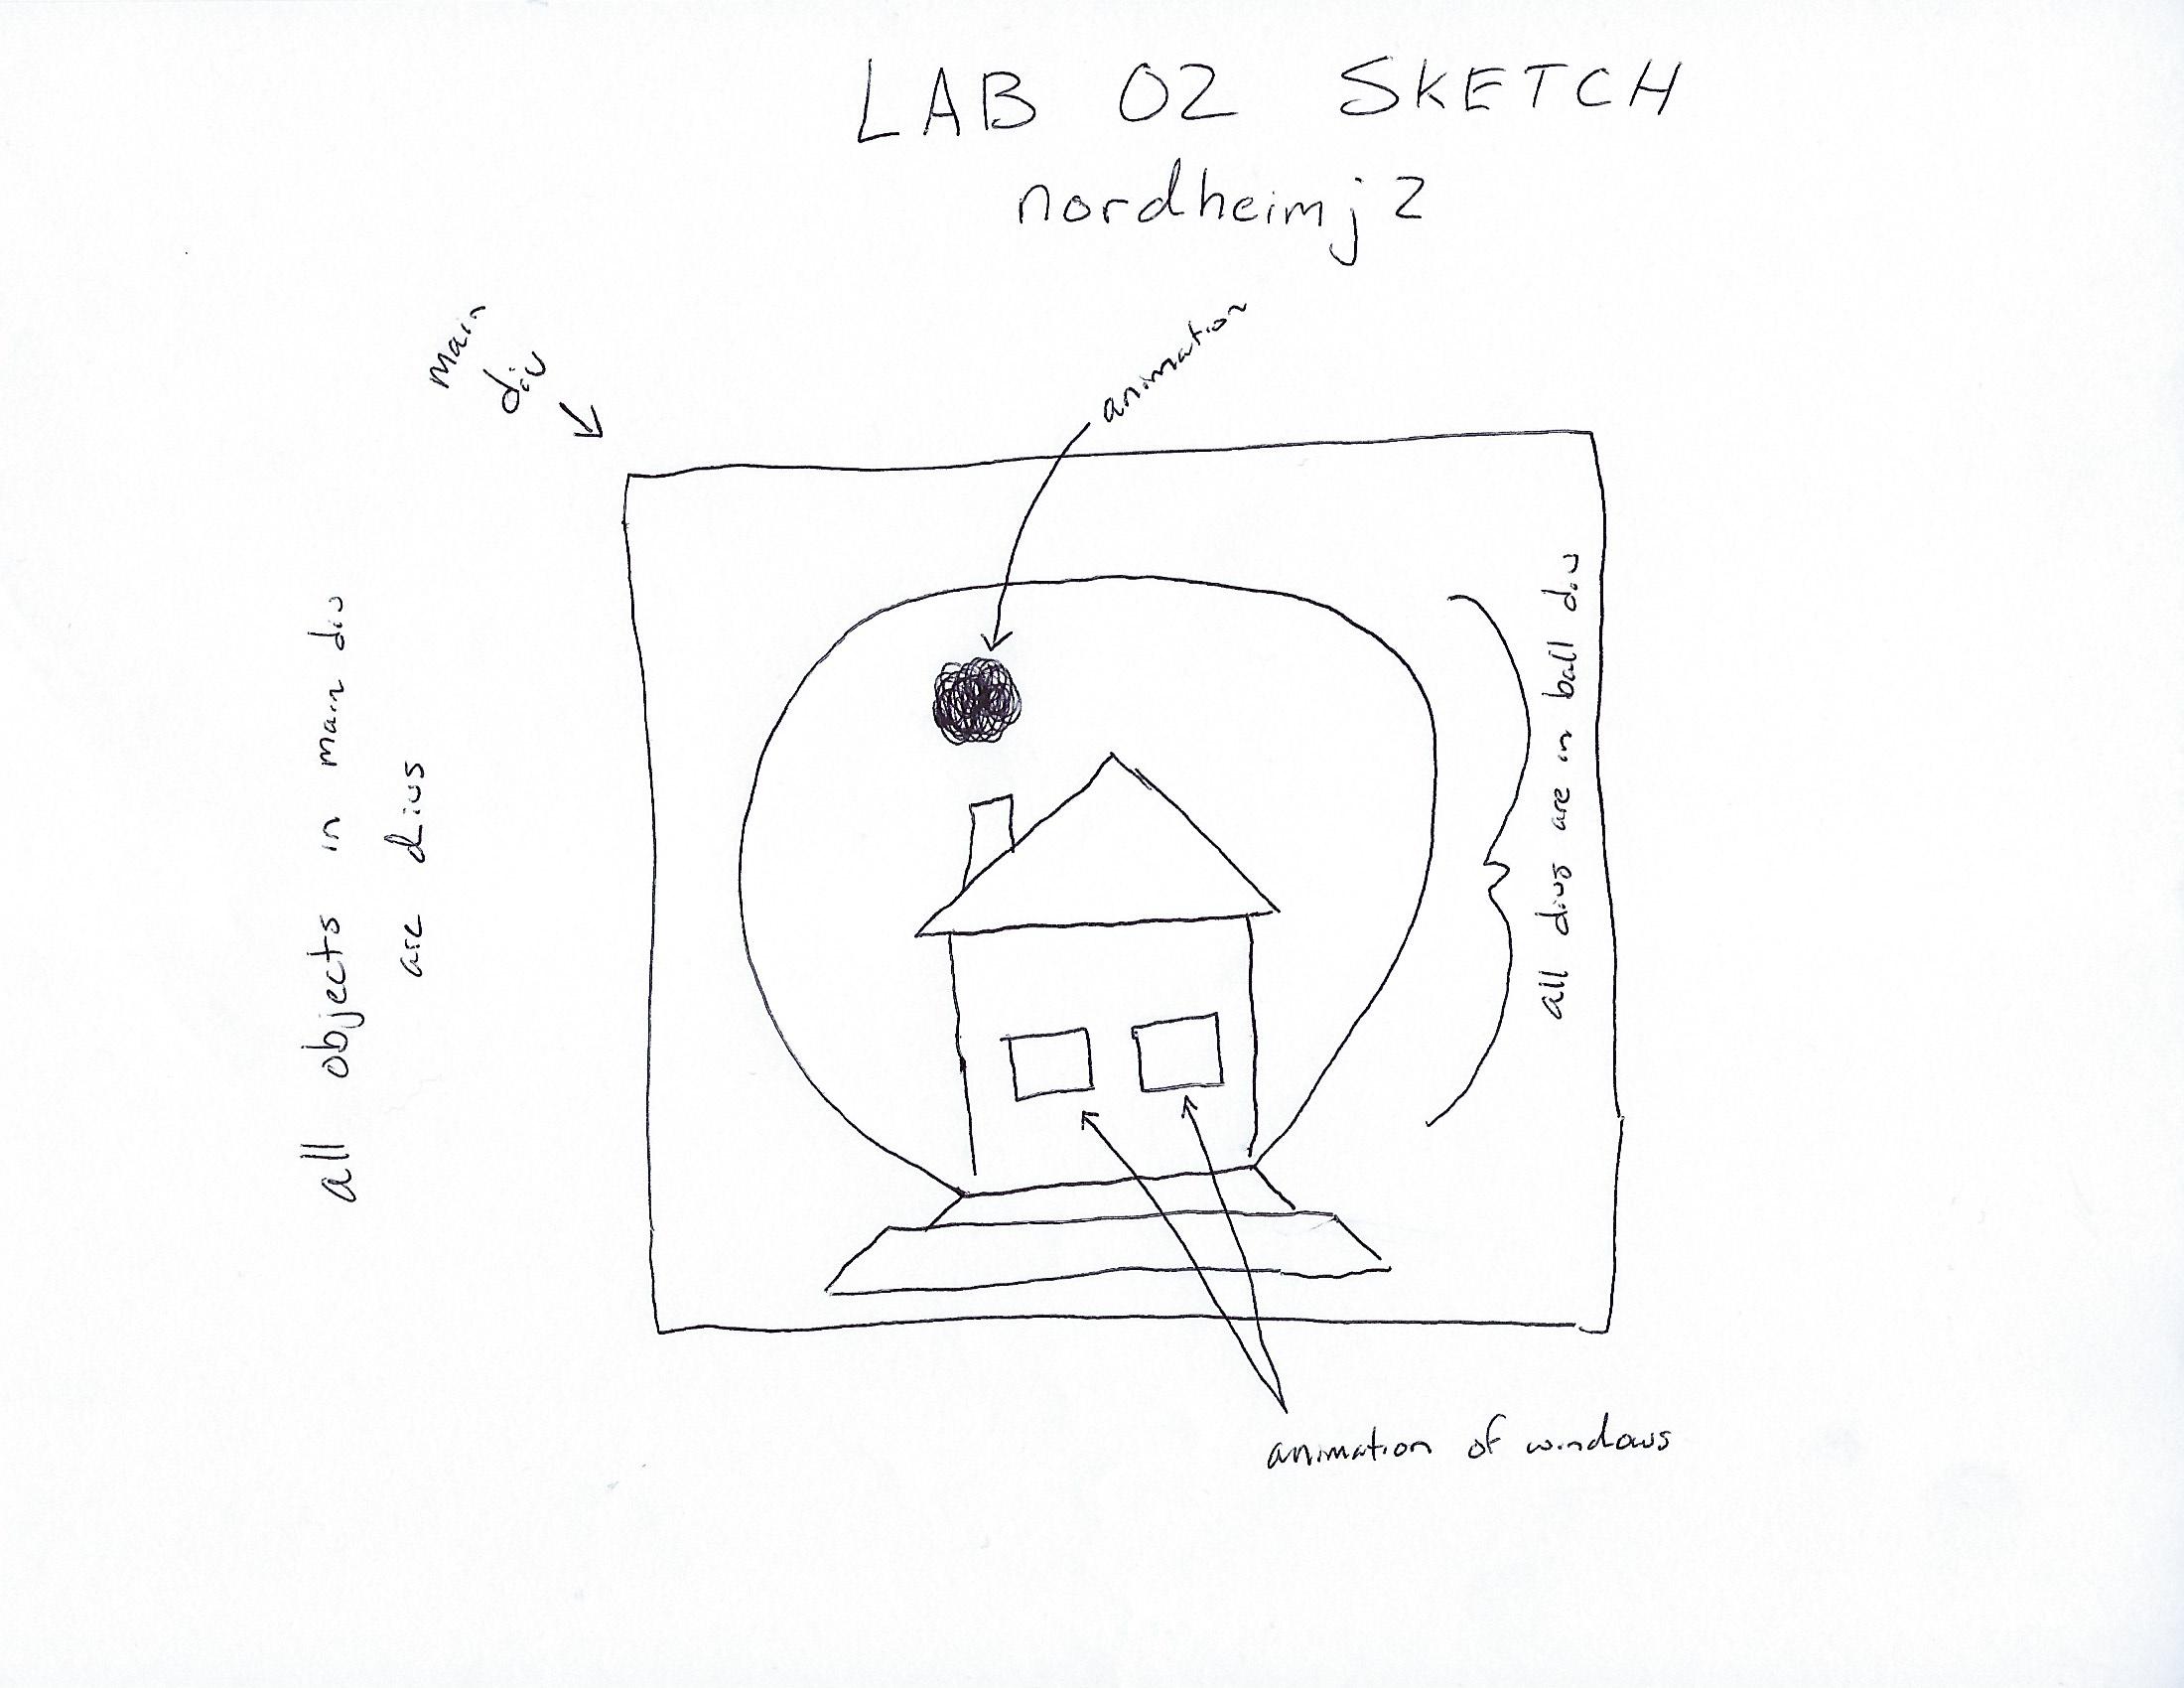 LAB 02 SKETCH
nordheimj2
main
div
animation
all objects in main div
are divs
all divs are in ball div
animation of windows